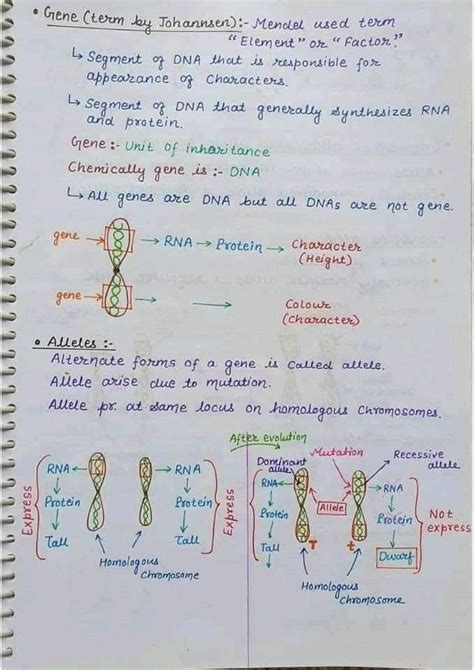 • Gene (term by Johannsen):- Mendel used term
"Element" or "Factor."
↳ Segment of DNA that is responsible for
appearance of characters.
↳ Segment of DNA that generally synthesizes RNA
and protein.
Gene:- Unit of inheritance
Chemically gene is:- DNA
↳ All genes are DNA but all DNAs are not gene.
gene → RNA → Protein → Character
(Height)
gene → → Colour
(Character)
• Alleles :-
Alternate forms of a gene is called allele.
Allele arise due to mutation.
Allele pr. at same locus on homologous chromosomes.
After evolution
Express
RNA
Protein
Tall
RNA
Protein
Tall
Express
Homologous
chromosome
Dominant
allele
Mutation
Recessive
allele
RNA
Protein
Tall
Allele
T
t
RNA
Protein
Dwarf
Not
express
Homologous
Chromosome